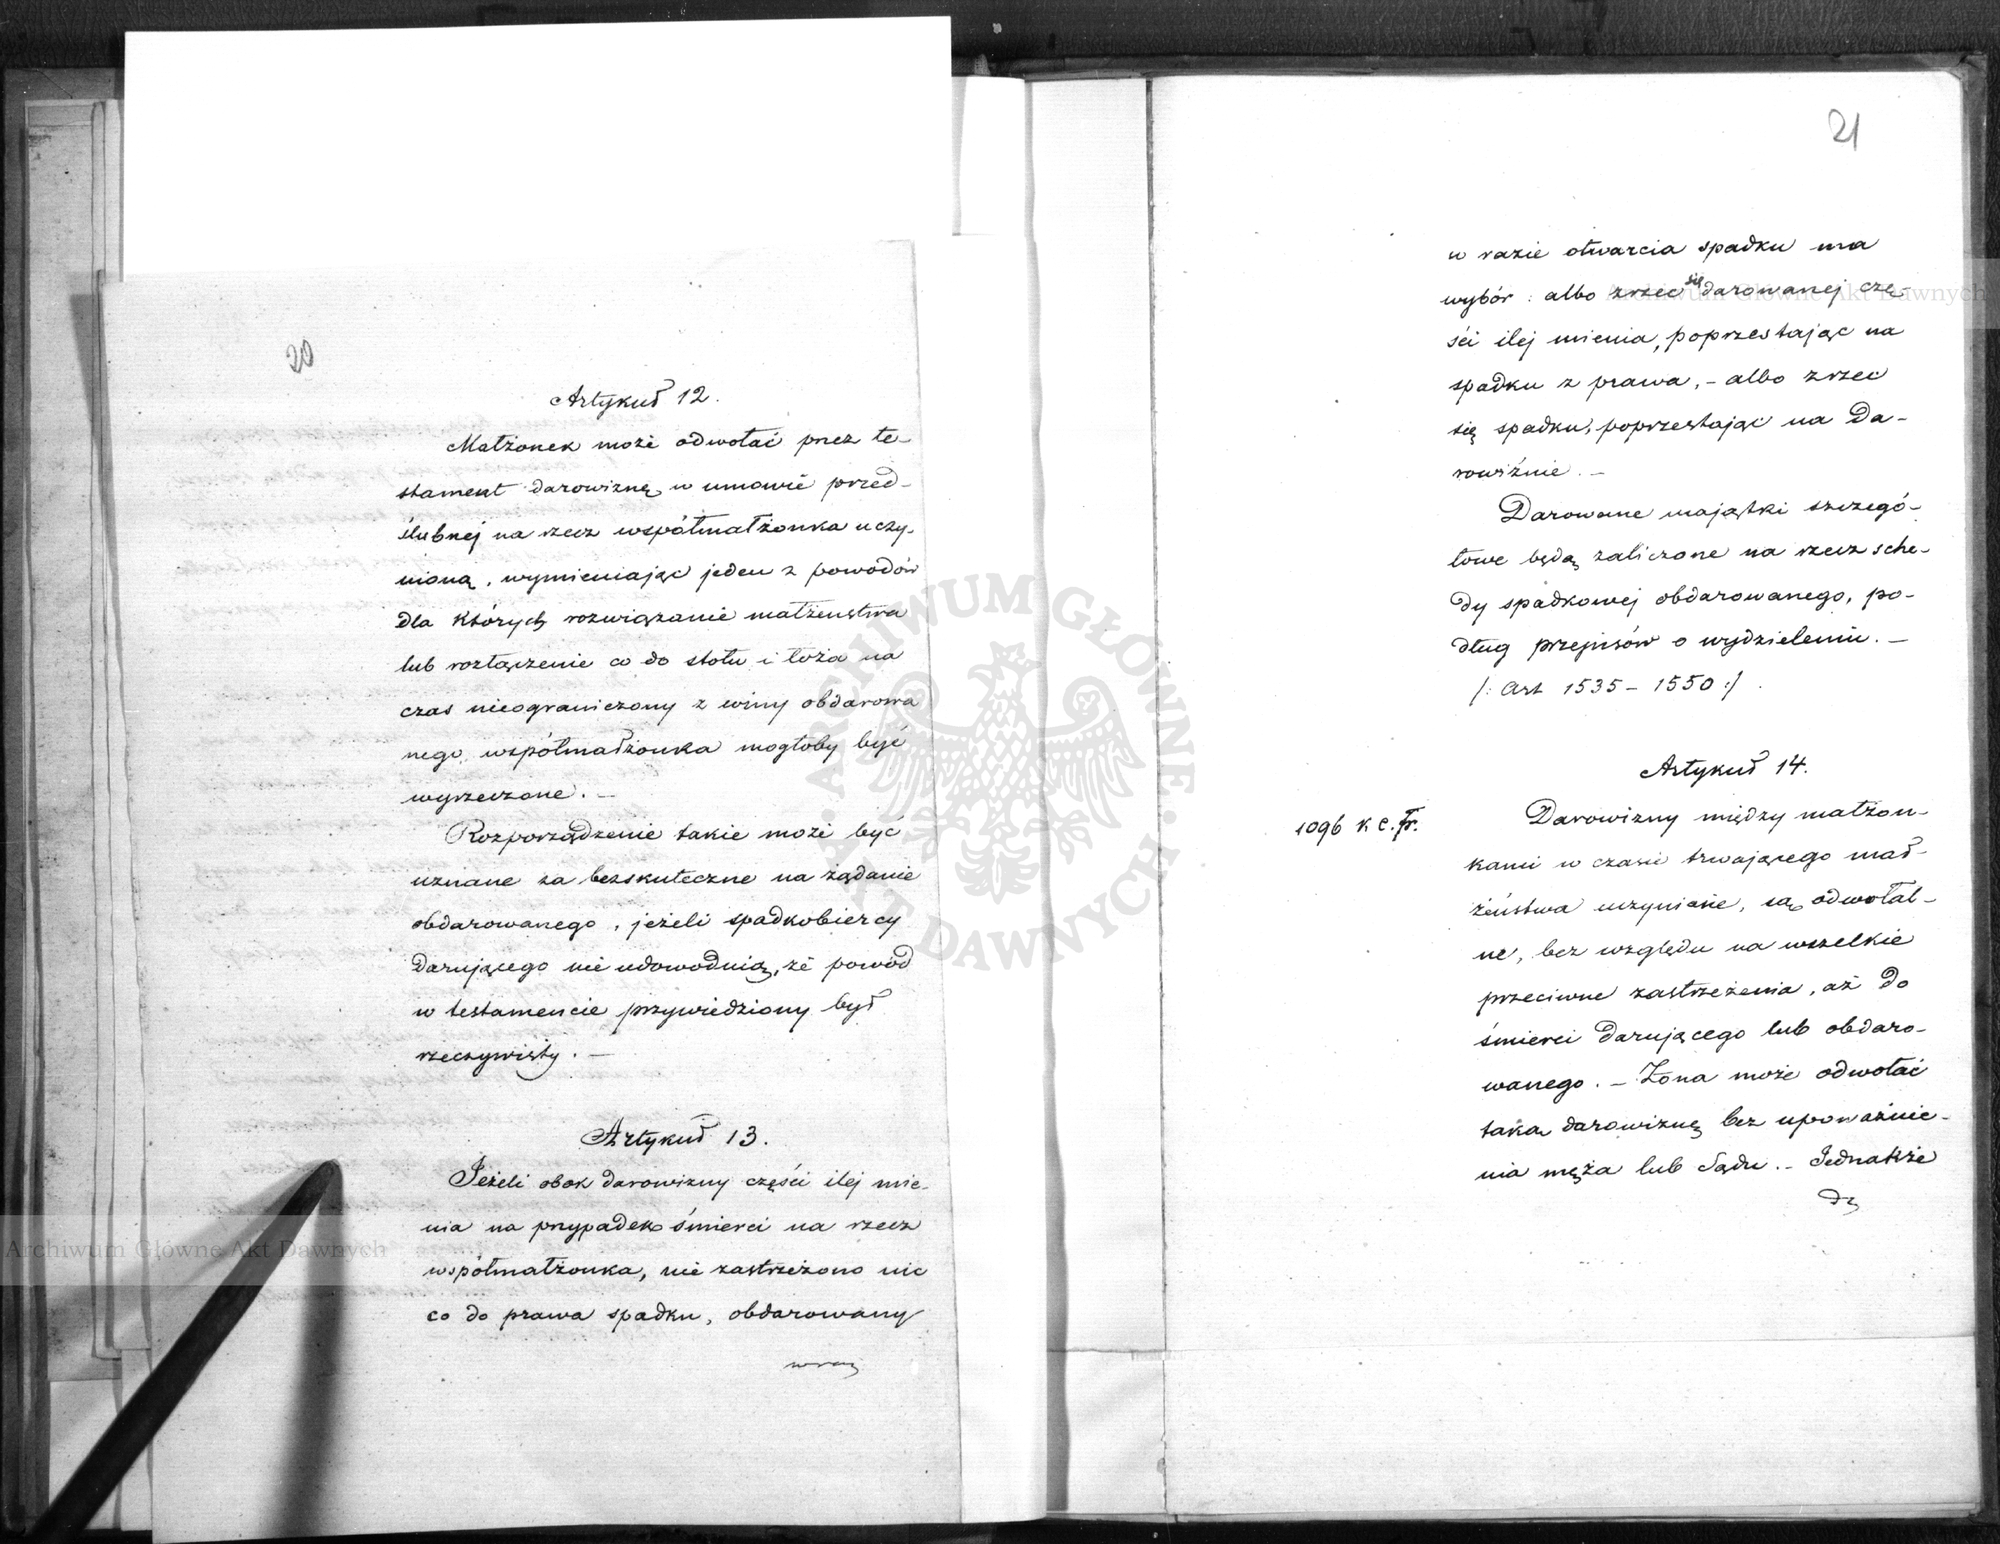 20
Artykuł 12.
Małżonek może odwołać przez te-
stament darowiznę w umowie przed-
ślubnej na rzecz współmałżonka uczy-
nioną, wymieniając jeden z powodów
dla których rozwiązanie małżeństwa
lub rozłączenie co do stołu i łoża na
czas nieograniczony z winy obdarowa
nego współmałżonka mogłoby być
wyrzeczone. —
Rozporządzenie takie może być
uznane za bezskuteczne na żądanie
obdarowanego, jeżeli spadkobiercy
darującego nie udowodnią, że powód
w testamencie przywiedziony był
rzeczywisty. —
Artykuł 13.
Jeżeli obok darowizny części ilej mie-
nia na przypadek śmierci na rzecz
współmałżonka, nie zastrzeżono nic
co do prawa spadku, obdarowany
w razi
21
w razie otwarcia spadku ma
wybór: albo zrzec się darowanej czę-
ści ilej mienia, poprzestając na
spadku z prawa, – albo zrzec
się spadku, poprzestając na da-
rowiźnie. —
Darowane majątki szczegó-
łowe będą zaliczone na rzecz sche-
dy spadkowej obdarowanego, po-
dług przepisów o wydzieleniu. —
/: Art 1535 – 1550 :/
Artykuł 14.
1096 K.C.Fr.
Darowizny między małżon-
kami w czasie trwającego mał-
żeństwa uczynione, są odwołal-
ne, bez względu na wszelkie
przeciwne zastrzeżenia, aż do
śmierci darującego lub obdaro-
wanego. – Żona może odwołać
taką darowiznę bez upoważnie-
nia męża lub Sądu. – Jednakże
Archiwum Główne Akt Dawnych
Archiwum Główne Akt Dawnych
ARCHIWUM GŁÓWNE AKT DAWNYCH